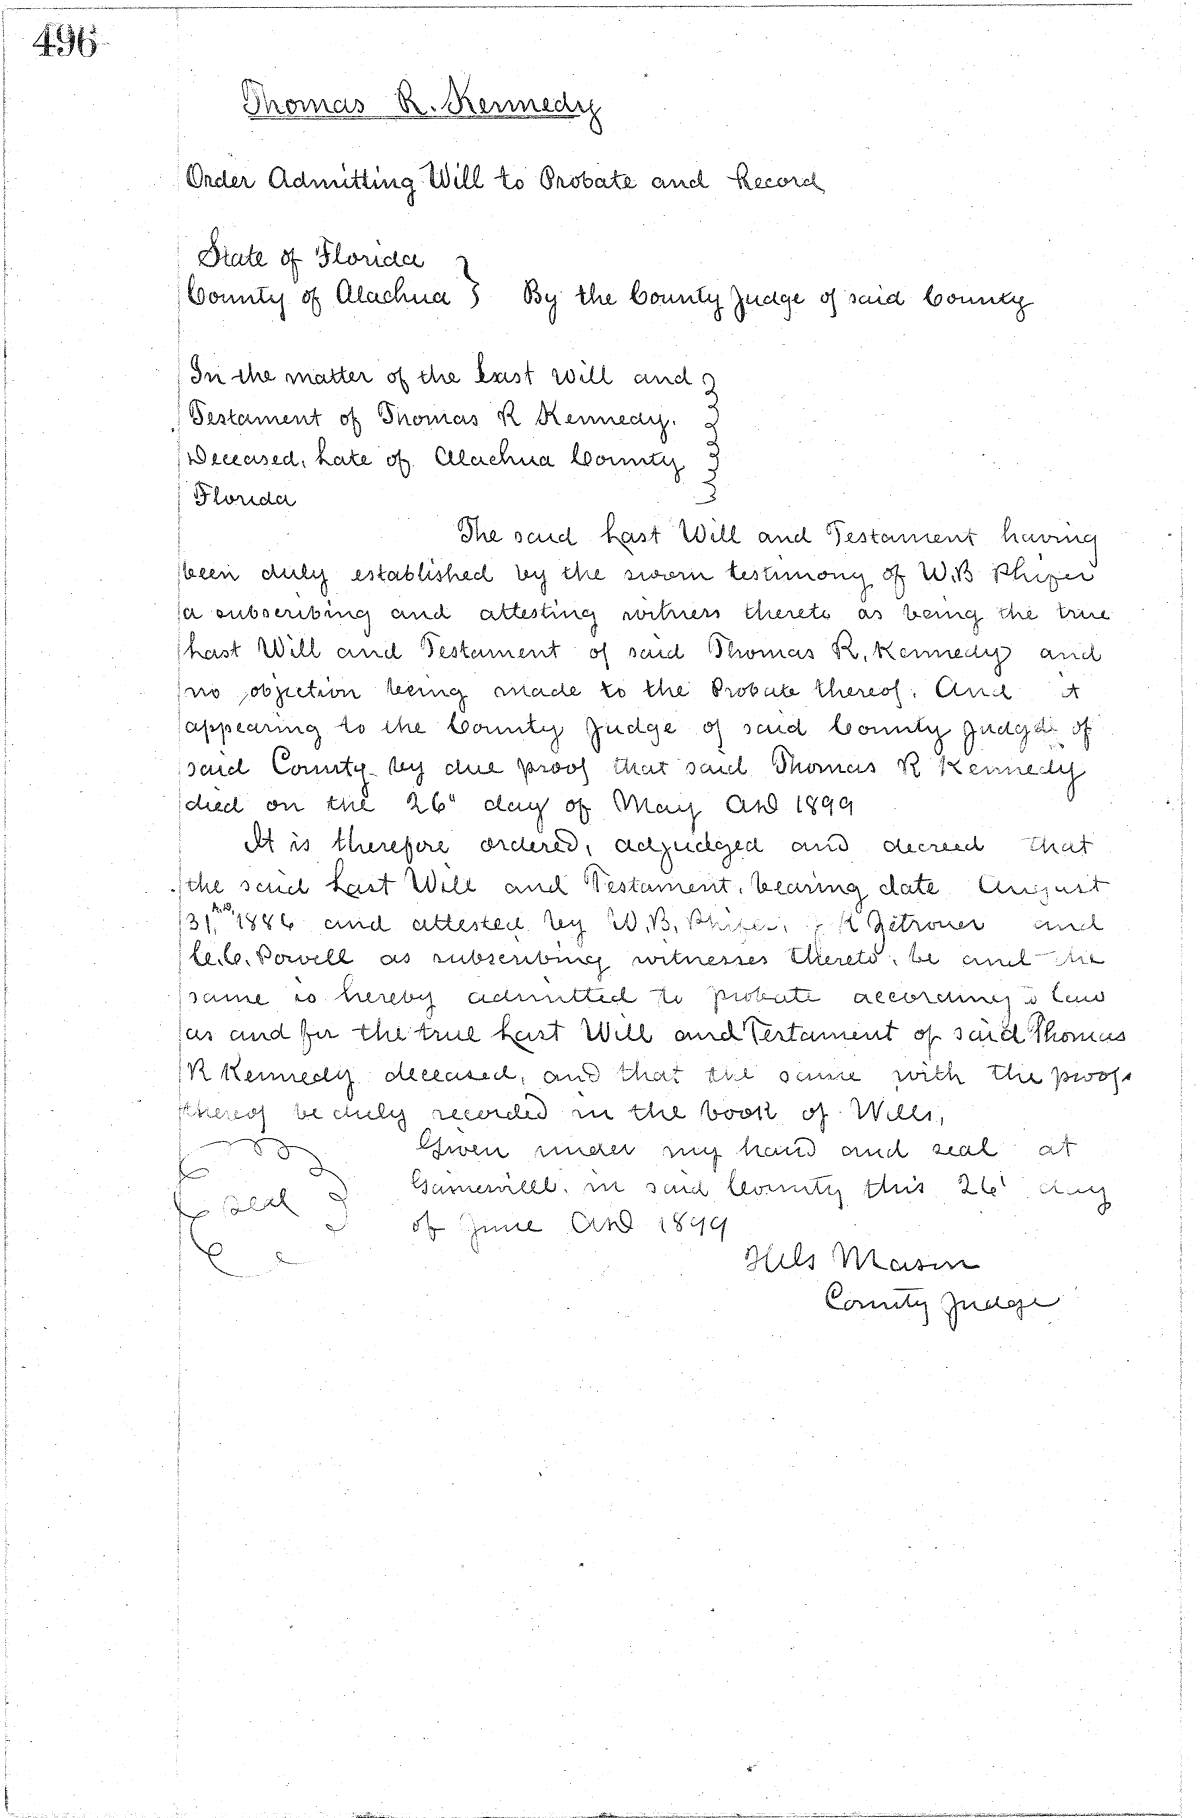 496
Thomas R. Kennedy
Order Admitting Will to Probate and Record
State of Florida
County of Alachua } By the County Judge of said County
In the matter of the Last Will and
Testament of Thomas R Kennedy.
Deceased, Late of Alachua County
Florida
The said Last Will and Testament having
been duly established by the sworn testimony of W.B Phifer
a subscribing and attesting witness thereto as being the true
Last Will and Testament of said Thomas R. Kennedy and
no objection being made to the Probate thereof. And it
appearing to the County Judge of said County Judge of
said County by due proof that said Thomas R Kennedy
died on the 26" day of May AD 1899
It is therefore ordered, adjudged and decreed that
the said Last Will and Testament, bearing date August
31, A.D. 1886 and attested by W.B. Phifer, J K Zetrouer and
C.C. Powell as subscribing witnesses thereto, be and the
same is hereby admitted to probate according to law
as and for the true Last Will and Testament of said Thomas
R Kennedy deceased, and that the same with the proof
thereof be duly recorded in the book of Wills,
Given under my hand and seal at
Gainesville, in said County this 26' day
of June AD 1899
seal
Mason
County Judge